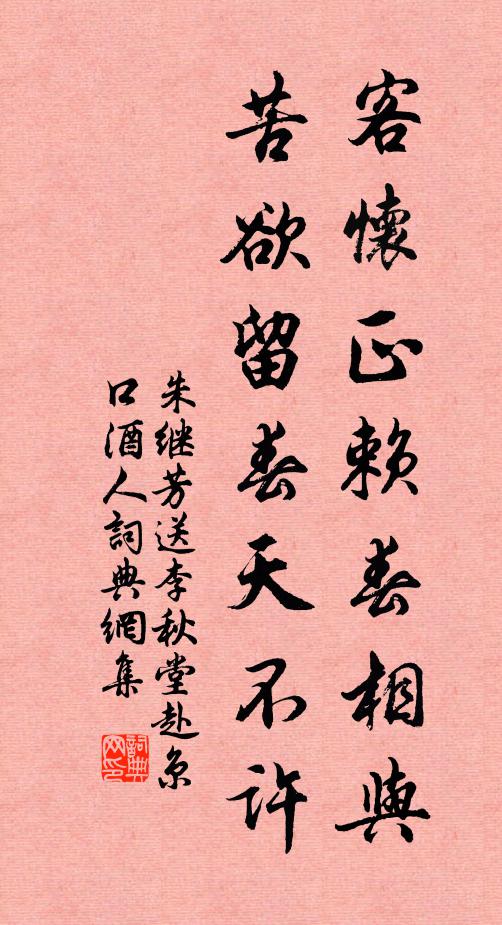 客懷正賴春相與
苦欲留春天不許
朱继芳送李秋堂赴京
口酒人詞典網集
詞典网印